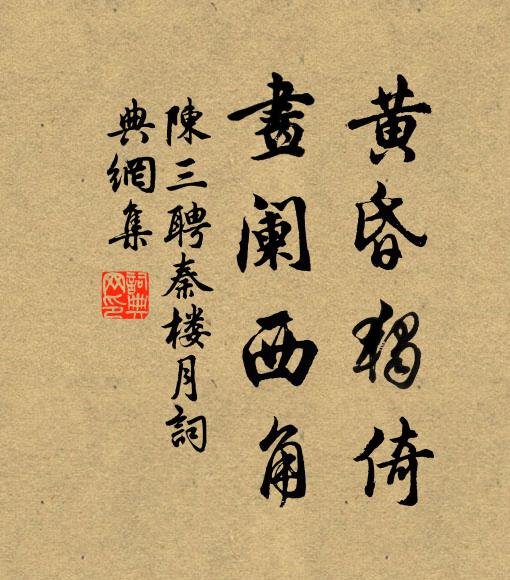 黄昏獨倚
畫阑西角
陳三聘秦楼月詞
典網集
詞典
网印